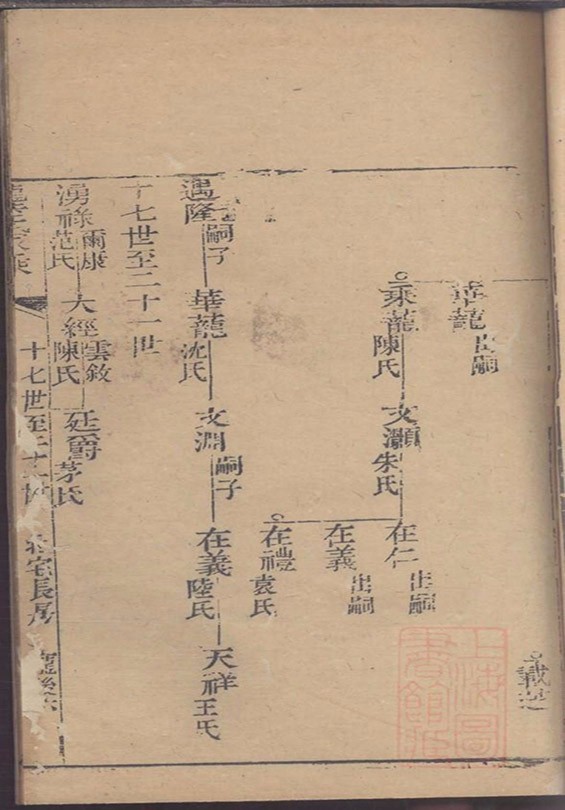 華蘢 出嗣
秉蘢 陳氏 文灝 朱氏 在仁 出嗣
在義 出嗣
在禮 袁氏
遇隆 嗣子 華蘢 沈氏 文淵 嗣子 在義 陸氏 天祥 王氏
十七世至二十一世
湧祿 爾康 范氏 大經 雲敘 陳氏 廷爵 茅氏
十七世至二十一世 宅長房
上海圖書館藏